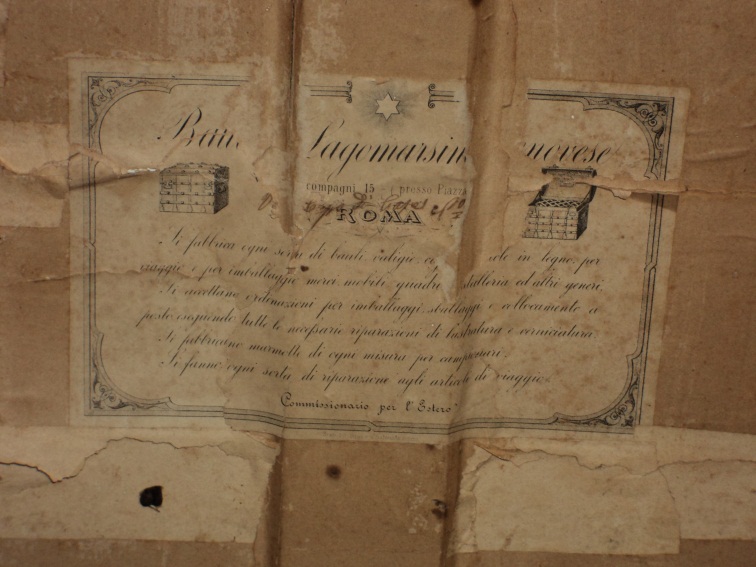 Lagomarsin
compagni 15 presso Piazz
ROMA
Si fabbrica ogni sorta di bauli, valigie, in legno, per
viaggio e per imballaggio merci, mobili, quadri ed altri generi.
Si accettano ordinazioni per imballaggi, sballaggi e collocamento a
posto, eseguendo tutte le necessarie riparazioni di lustratura e verniciatura.
Si fabbricano marmotte di ogni misura per campionari.
Si fanno ogni sorta di riparazione agli articoli di viaggio.
Commissionario per l'Estero